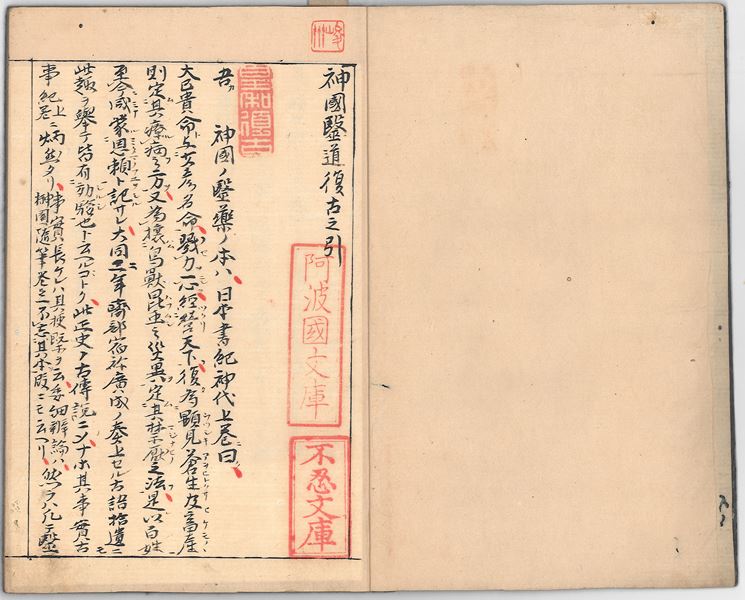 神國醫道復古之引
吾 神國ノ醫藥ノ本ハ日本書紀神代上卷曰
大己貴命與少彥名命戮力一心經營天下復為顯見蒼生及畜產
則定其療病之方又為攘鳥獸昆虫之災異定其禁厭之法是以百姓
至今咸蒙恩賴ト記サレ大同二年齋部宿祢廣成ノ奏上セル古語拾遺ニ
此趣ヲ舉テ皆有効驗也ト云ヘルコトク此正史ノ古傳說ニシテナホ其事實古
事紀上卷ニ炳然タリ事實長ケレハ其梗槩ヲ云委細辨論ハ
阿波國文庫
不忍文庫